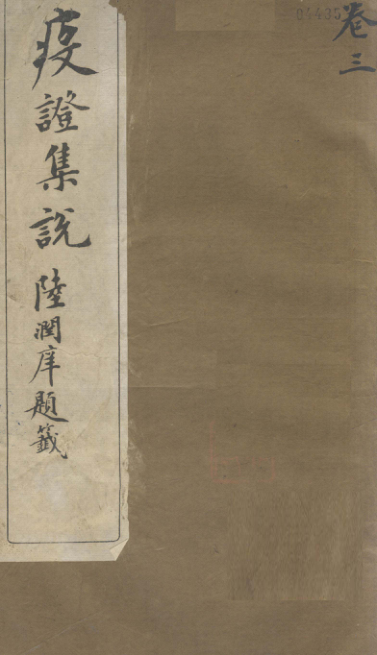 卷三
疫證集說
陸潤庠題籤